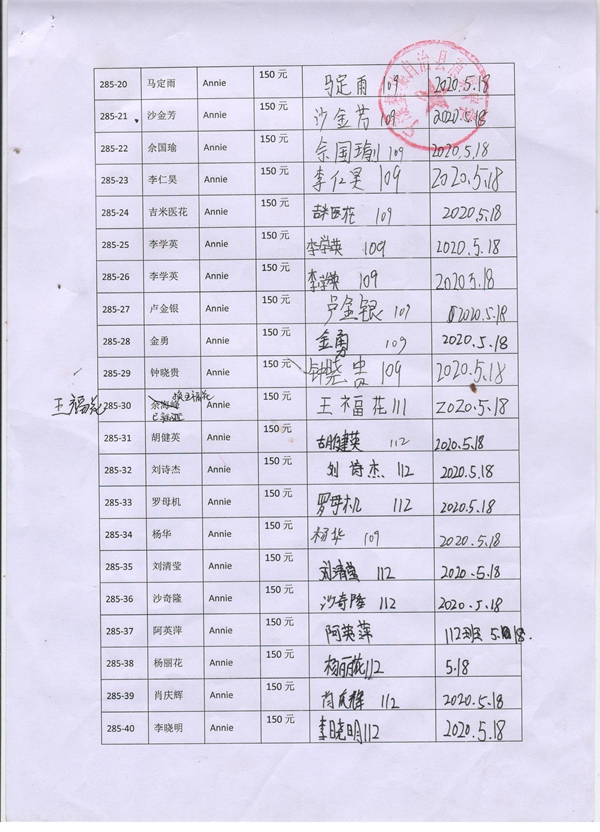 自治县
285-20 马定雨 Annie 150 元 马定雨 109 2020.5.18
285-21 沙金芳 Annie 150 元 沙金芳 109 2020.5.18
285-22 余国瑜 Annie 150 元 余国瑜 109 2020.5.18
285-23 李仁昊 Annie 150 元 李仁昊 109 2020.5.18
285-24 吉米医花 Annie 150 元 吉米医花 109 2020.5.18
285-25 李学英 Annie 150 元 李学英 109 2020.5.18
285-26 李学英 Annie 150 元 李学英 109 2020.5.18
285-27 卢金银 Annie 150 元 卢金银 109 2020.5.18
285-28 金勇 Annie 150 元 金勇 109 2020.5.18
285-29 钟晓贵 Annie 150 元 钟晓贵 109 2020.5.18
换王福花
王福花 285-30 余海峰 Annie 150 元 王福花 111 2020.5.18
285-31 胡健英 Annie 150 元 胡健英 112 2020.5.18
285-32 刘诗杰 Annie 150 元 刘诗杰 112 2020.5.18
285-33 罗母机 Annie 150 元 罗母机 112 2020.5.18
285-34 杨华 Annie 150 元 杨华 109 2020.5.18
285-35 刘清莹 Annie 150 元 刘清莹 112 2020.5.18
285-36 沙奇隆 Annie 150 元 沙奇隆 112 2020.5.18
285-37 阿英萍 Annie 150 元 阿英萍 112班 5.18.
285-38 杨丽花 Annie 150 元 杨丽花 112 5.18
285-39 肖庆辉 Annie 150 元 肖庆辉 112 2020.5.18
285-40 李晓明 Annie 150 元 李晓明 112 2020.5.18